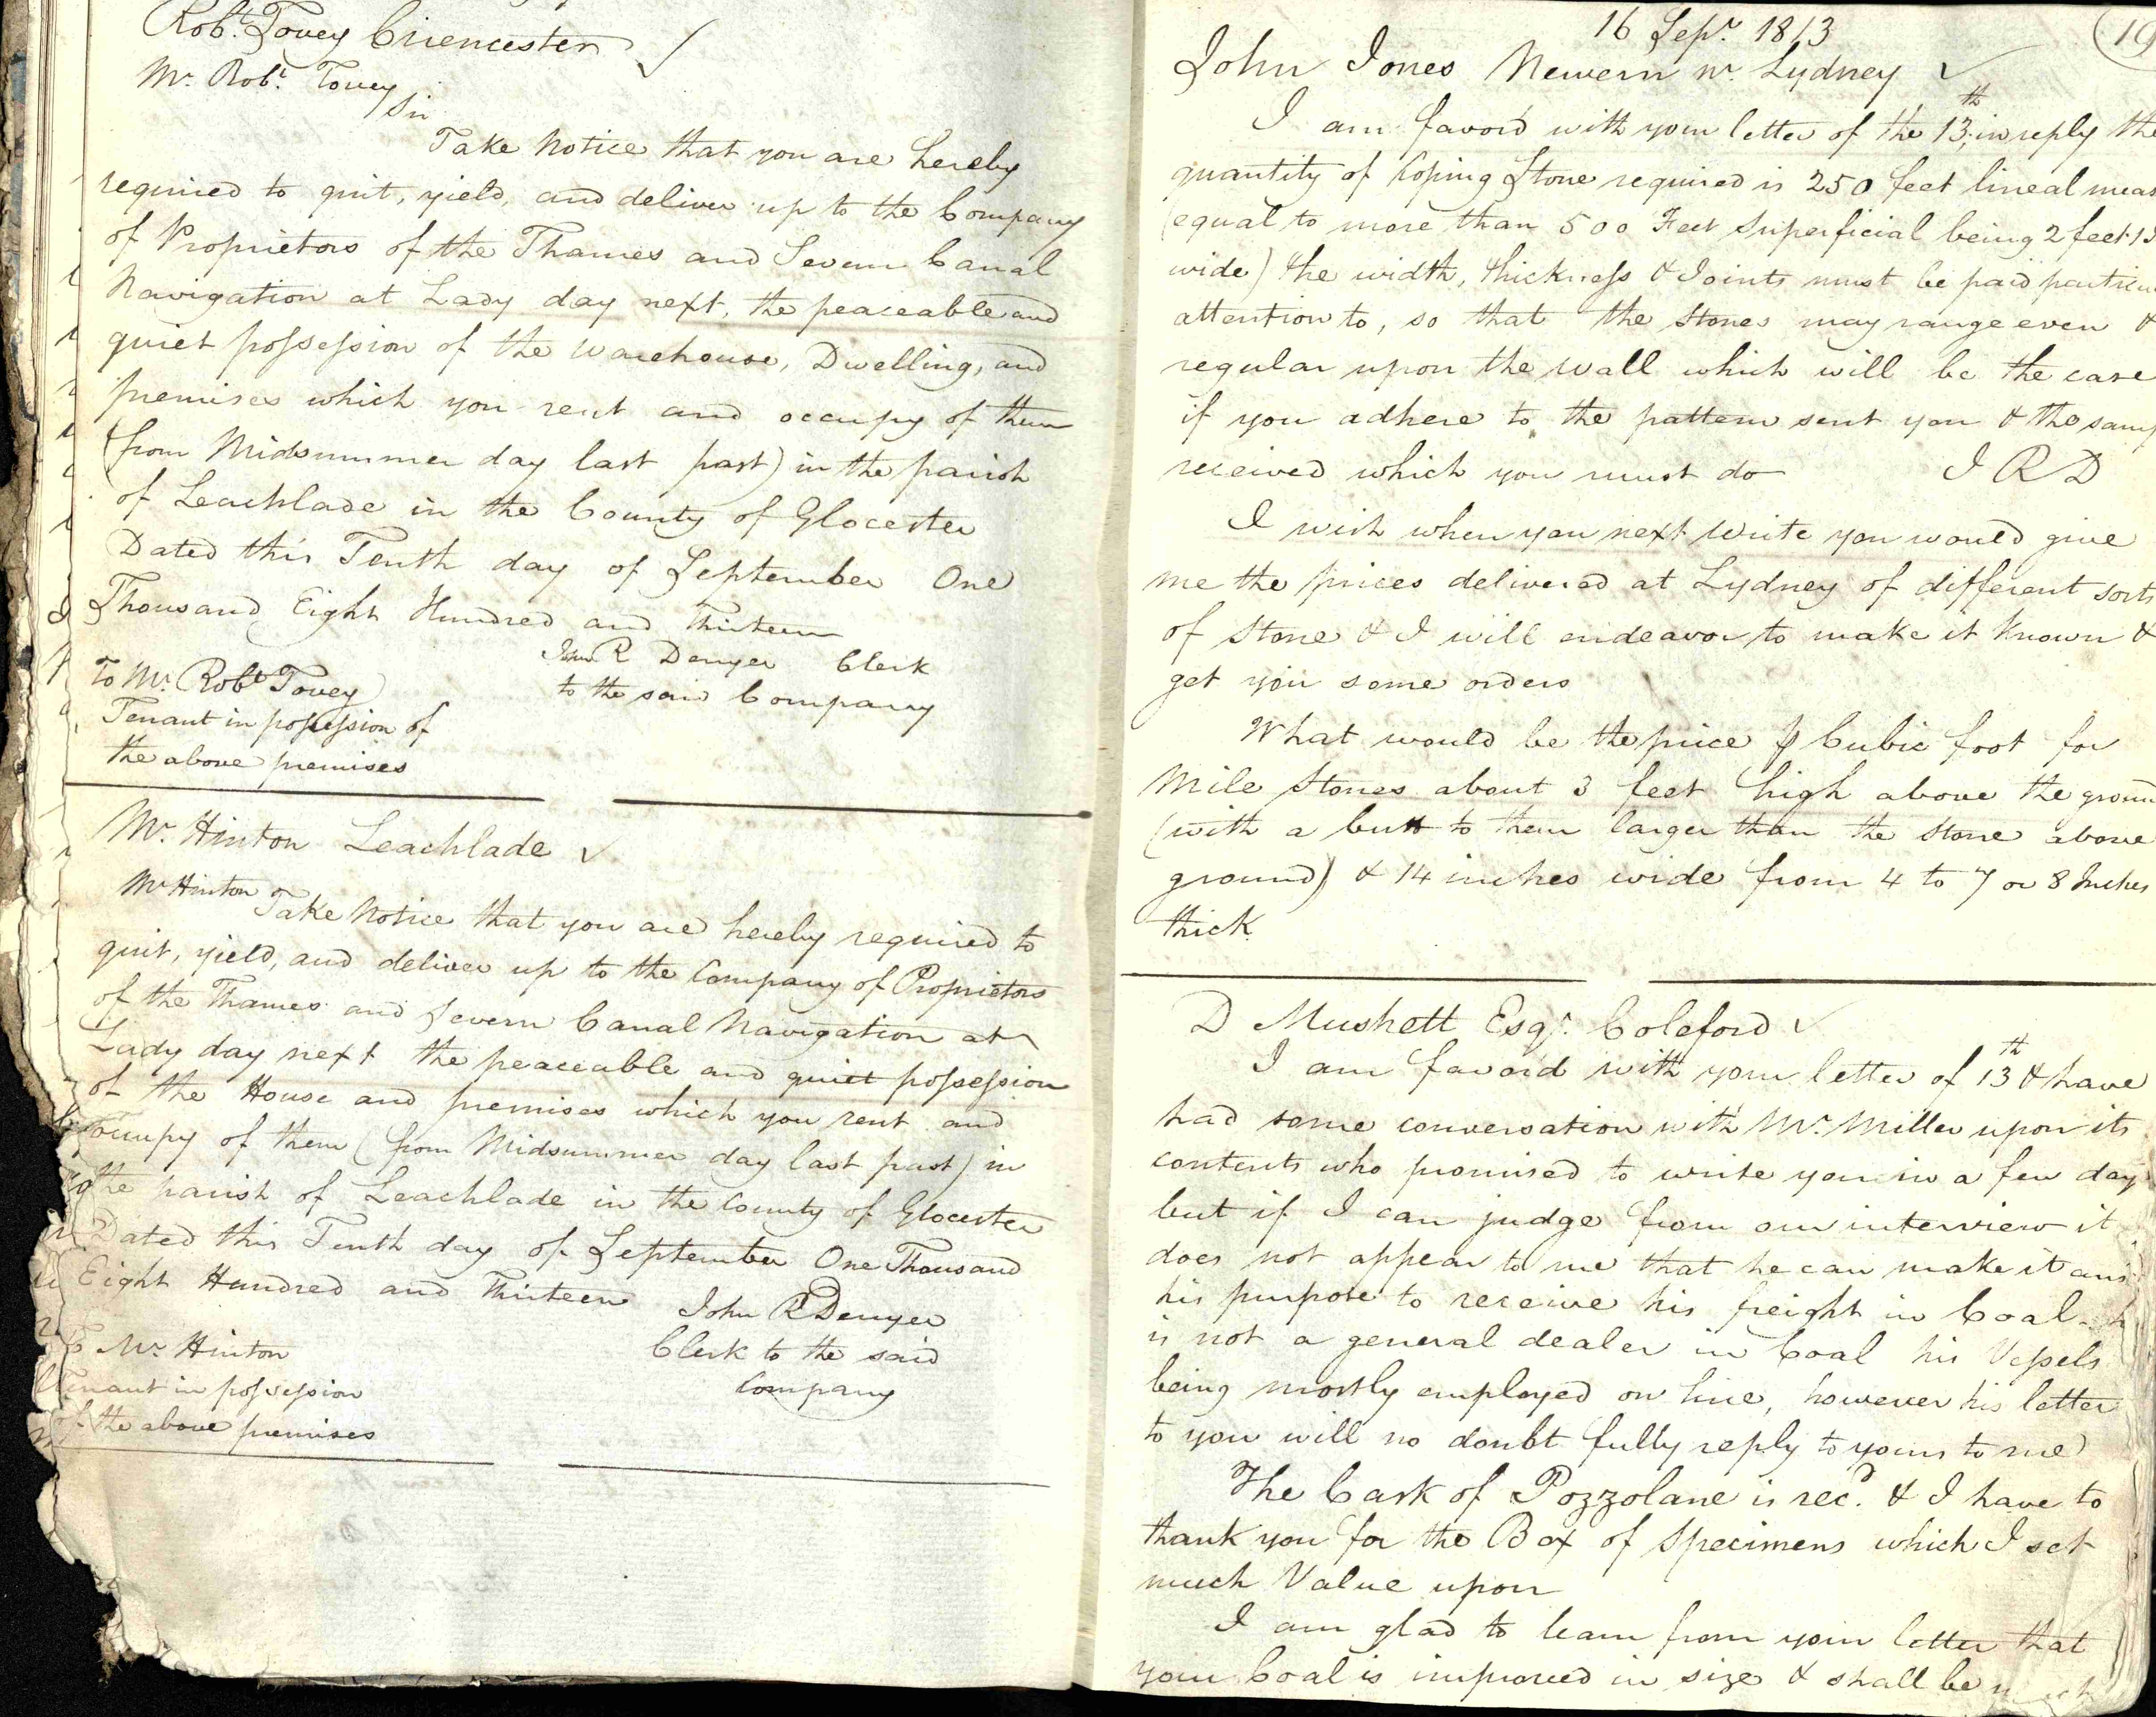 Robt. Tovey Cirencester
Mr. Robt. Tovey
Sir
Take Notice that you are hereby
required to quit, yield, and deliver up to the Company
of Proprietors of the Thames and Severn Canal
Navigation at Lady day next, the peaceable and
quiet possession of the Warehouse, Dwelling, and
premises which you rent and occupy of them
(from Midsummer day last past) in the parish
of Leachlade in the County of Glocester
Dated this Tenth day of September One
Thousand Eight Hundred and Thirteen
John R Denyer Clerk
to the said Company
To Mr. Robt Tovey
Tenant in possession of
the above premises
Mr. Hinton Leachlade
Mr Hinton Take Notice that you are hereby required to
quit, yield, and deliver up to the Company of Proprietors
of the Thames and Severn Canal Navigation at
Lady day next the peaceable and quiet possession
of the House and premises which you rent and
occupy of them (from Midsummer day last past) in
the parish of Leachlade in the County of Glocester
Dated this Tenth day of September One Thousand
Eight Hundred and Thirteen
John R Denyer
Clerk to the said
Company
To Mr Hinton
Tenant in possession
of the above premises
16 Sepr. 1813
John Jones Newern nr. Lydney
I am favord with your letter of the 13th, in reply the
quantity of Coping Stone required is 250 feet lineal
(equal to more than 500 Feet Superficial being 2 feet
wide) the width, thickness & Joints must be paid
attention to, so that the Stones may range even &
regular upon the wall which will be the case
if you adhere to the pattern sent you & the
received which you must do J R D
I wish when you next write you would give
me the prices delivered at Lydney of different sorts
of Stone & I will endeavor to make it known &
get you some orders
What would be the price ⅌ Cubic foot for
Mile Stones about 3 feet high above the ground
(with a butt to them larger than the stone above
ground) & 14 inches wide from 4 to 7 or 8 Inches
thick
D Mushett Esqr. Coleford
I am favord with your letter of 13th & have
had some conversation with Mr. Miller upon its
contents who promised to write you in a few day
but if I can judge from our interview it
does not appear to me that he can make it
his purpose to receive his freight in Coal
is not a general dealer in Coal his Vessels
being mostly employed on hire, however his letter
to you will no doubt fully reply to yours to me
The Cask of Pozzolane is recd. & I have to
thank you for the Box of Specimens which I set
much Value upon
I am glad to learn from your letter that
your Coal is improved in size & shall be much